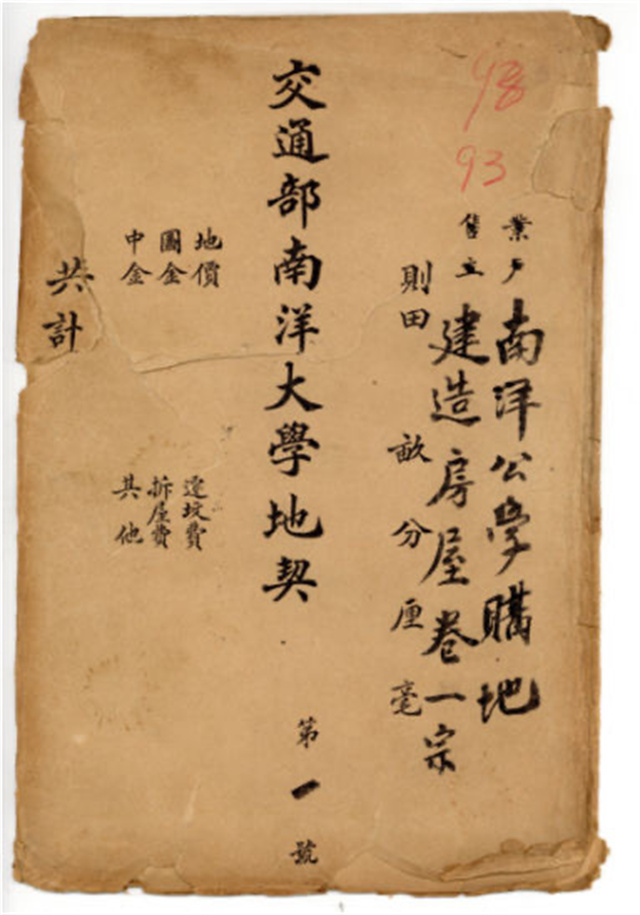 98
93
業戶 南洋公學購地
售主 建造房屋卷一宗
則田 畝 分 厘 毫
交通部南洋大學地契
第一號
地價
圖金
中金
遷坟費
拆屋費
其他
共計